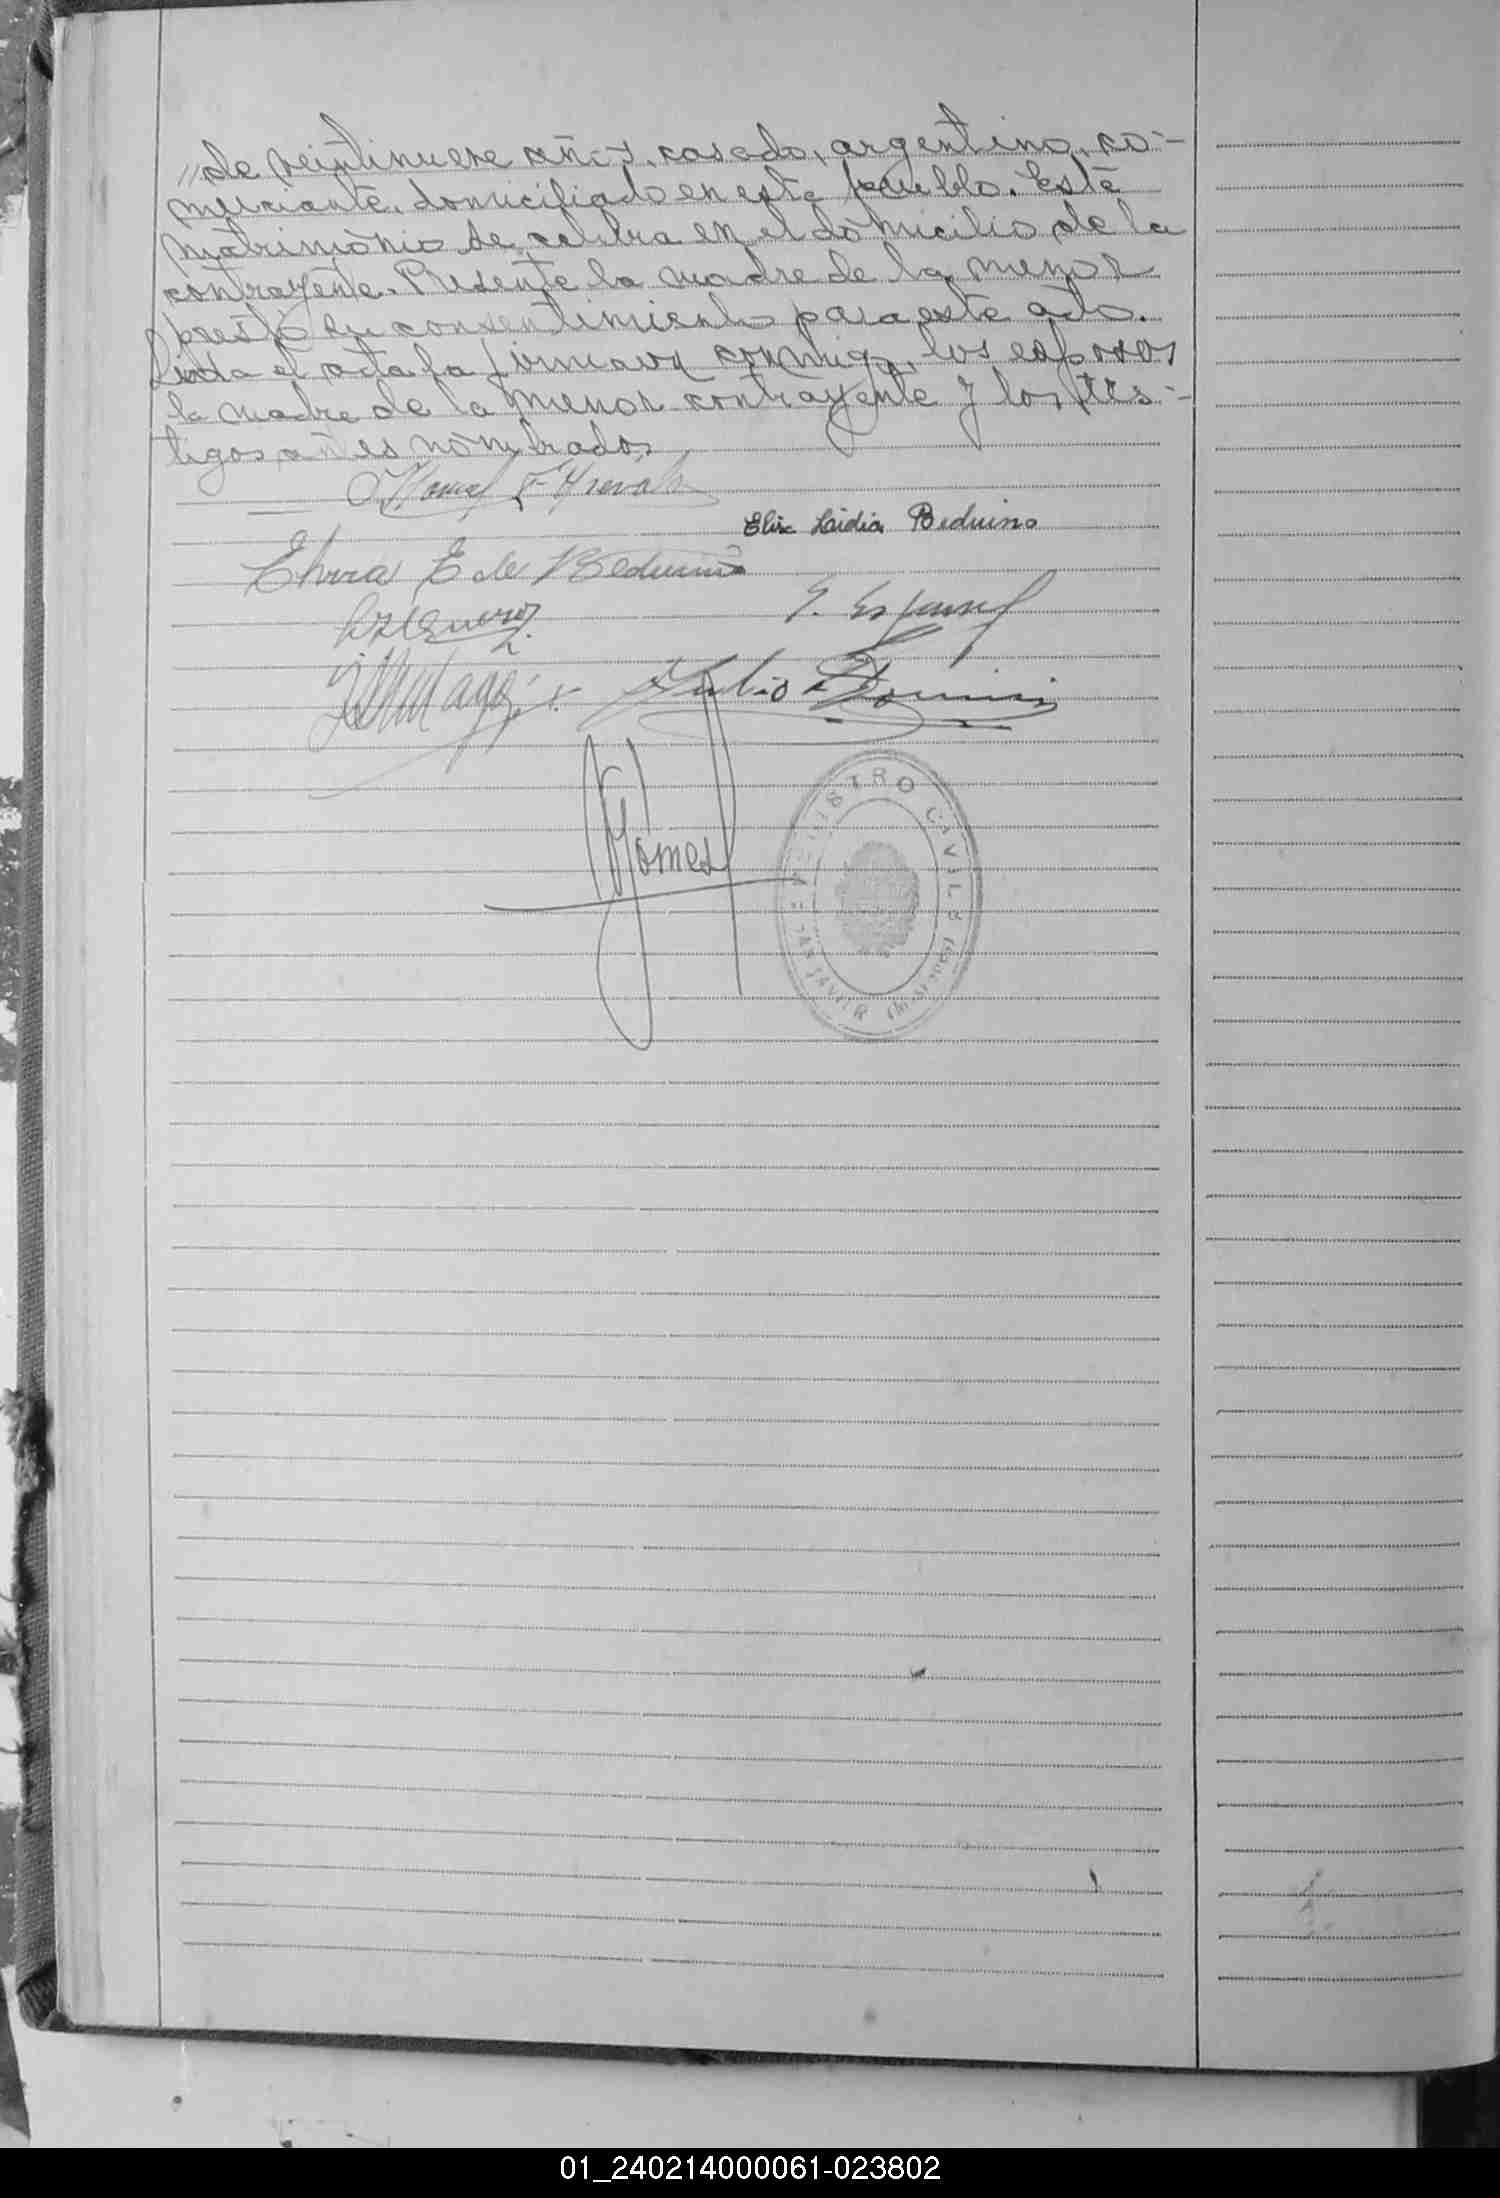 //de veintinueve años, casado, argentino, co-
merciante, domiciliado en este pueblo. Este
matrimonio se celebra en el domicilio de la
contrayente. Presente la madre de la menor
prestó su consentimiento para este acto.
Leida el acta la firmaron conmigo, los esposos
la madre de la menor contrayente y los tes-
tigos antes nombrados
Elix Lidia Beduino
Elvira E de Beduino
Julio
Gomez
REGISTRO CIVIL
SAN JAVIER (Misiones)
01_240214000061-023802